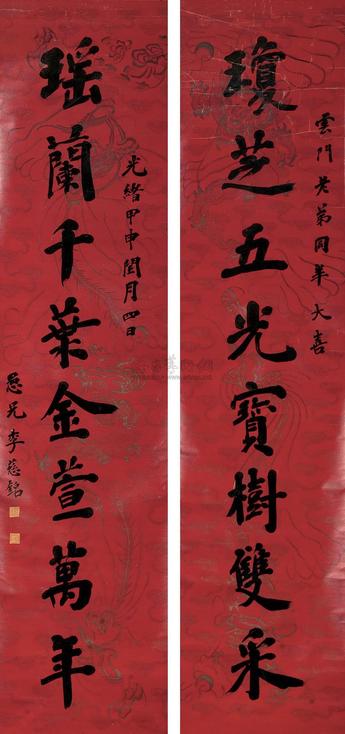 雲門老弟同年大喜
瓊芝五光寶樹雙采
光緒甲申閏月四日
瑶蘭千葉金萱萬年
愚兄李慈銘